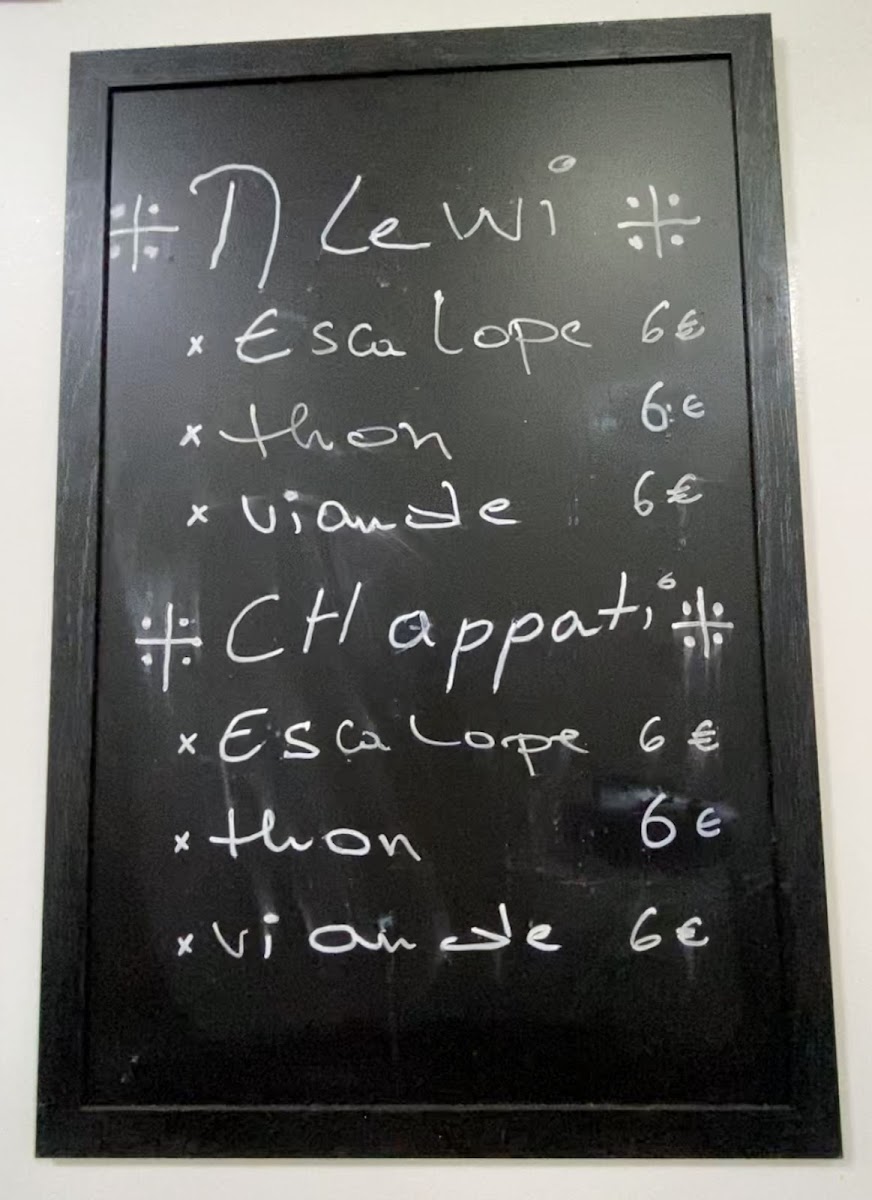 Mlewi
x Escalope 6€
x thon 6€
x viande 6€
CHappati
x Escalope 6€
x thon 6€
x viande 6€